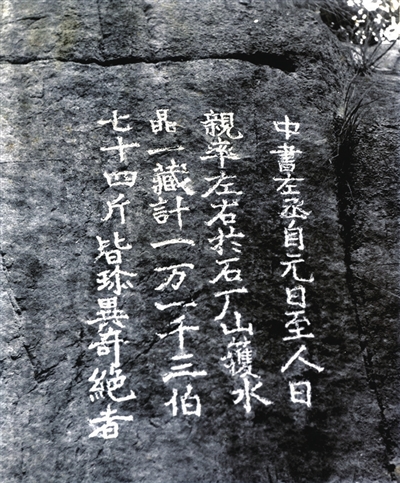 中書左丞自元日至人日
親率左右於石丁山獲水
晶一藏計一万一千三伯
七十四斤皆珎異奇絶者